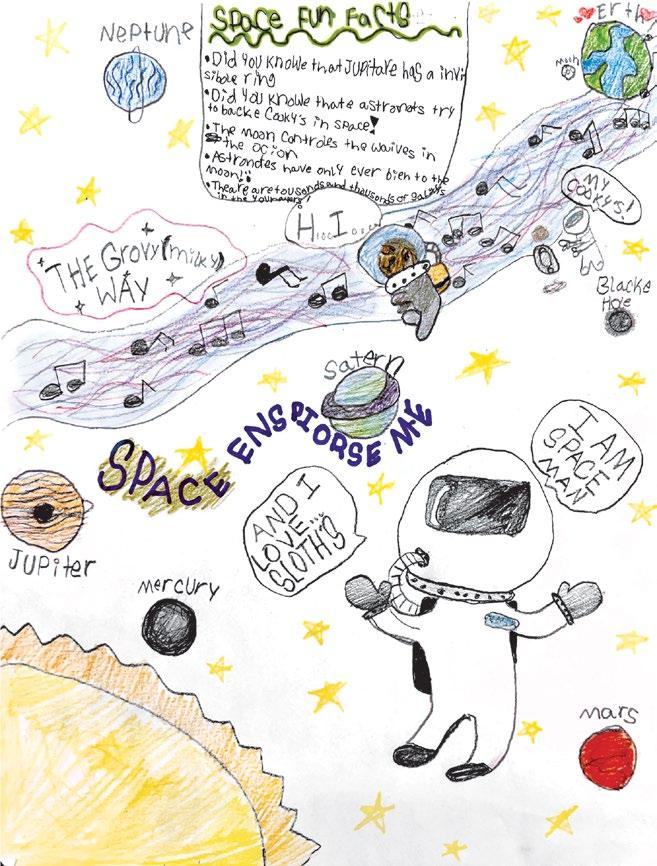 SPACE FUN FACTS
Erth
Neptune
moon
• Did you knowe that JUPitare has a invi
sibule ring
• Did you knowe thate astronots try
to backe Cooky's in space!
• The moon controles the waives in
the ocion
• Astrondes have only ever bien to the
moon!!
• Theare are tousonds and thousonds of galaxys
in the
MY COOKY'S!
H...I....
THE Grovy (milky)
WAY
Blacke
Hole
Satern
SPACE ENSPIORSE ME
I AM
SPACE
MAN
AND I
LOVE...
SLOTH'S
JUPiter
mercury
mars